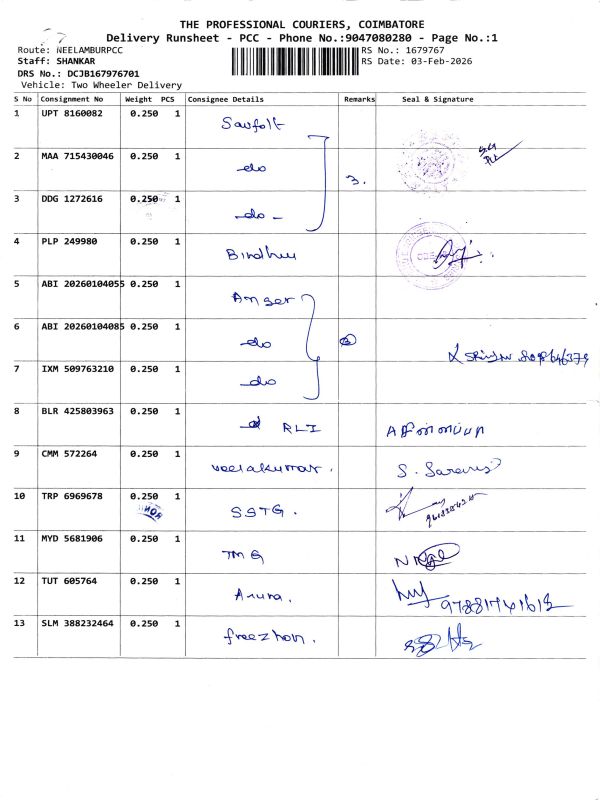 THE PROFESSIONAL COURIERS, COIMBATORE
Delivery Runsheet - PCC - Phone No.:9047080280 - Page No.:1
Route: NEELAMBURPCC RS No.: 1679767
Staff: SHANKAR RS Date: 03-Feb-2026
DRS No.: DCJB167976701
Vehicle: Two Wheeler Delivery
S No Consignment No Weight PCS Consignee Details Remarks Seal & Signature
1 UPT 8160082 0.250 1
2 MAA 715430046 0.250 1 do 3.
3 DDG 1272616 0.250 1 do -
4 PLP 249980 0.250 1 Bindhu
5 ABI 20260104055 0.250 1
6 ABI 20260104085 0.250 1 do
7 IXM 509763210 0.250 1 do
8 BLR 425803963 0.250 1 RLI
9 CMM 572264 0.250 1 veerakumar. S.
10 TRP 6969678 0.250 1 SSTG.
11 MYD 5681906 0.250 1 TMG
12 TUT 605764 0.250 1 Aruna.
13 SLM 388232464 0.250 1